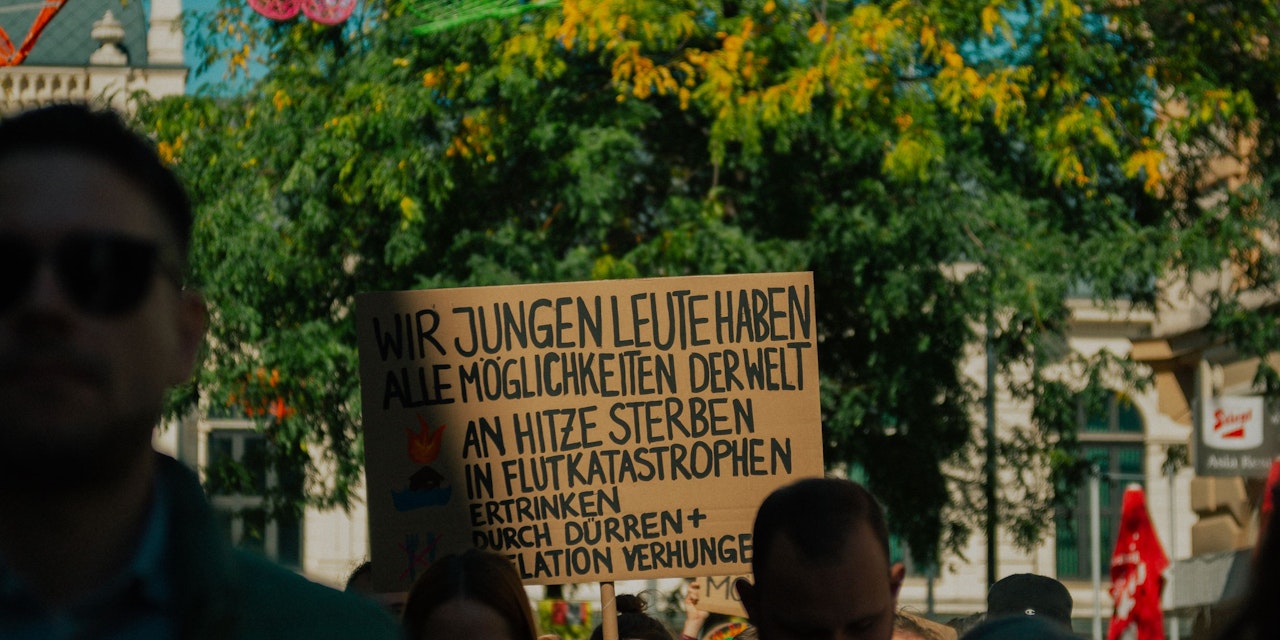 WIR JUNGEN LEUTE HABEN
ALLE MÖGLICHKEITEN DER WELT
AN HITZE STERBEN
IN FLUTKATASTROPHEN
ERTRINKEN
DURCH DÜRREN +
FLATION VERHUNGE
Stiegl
Asia